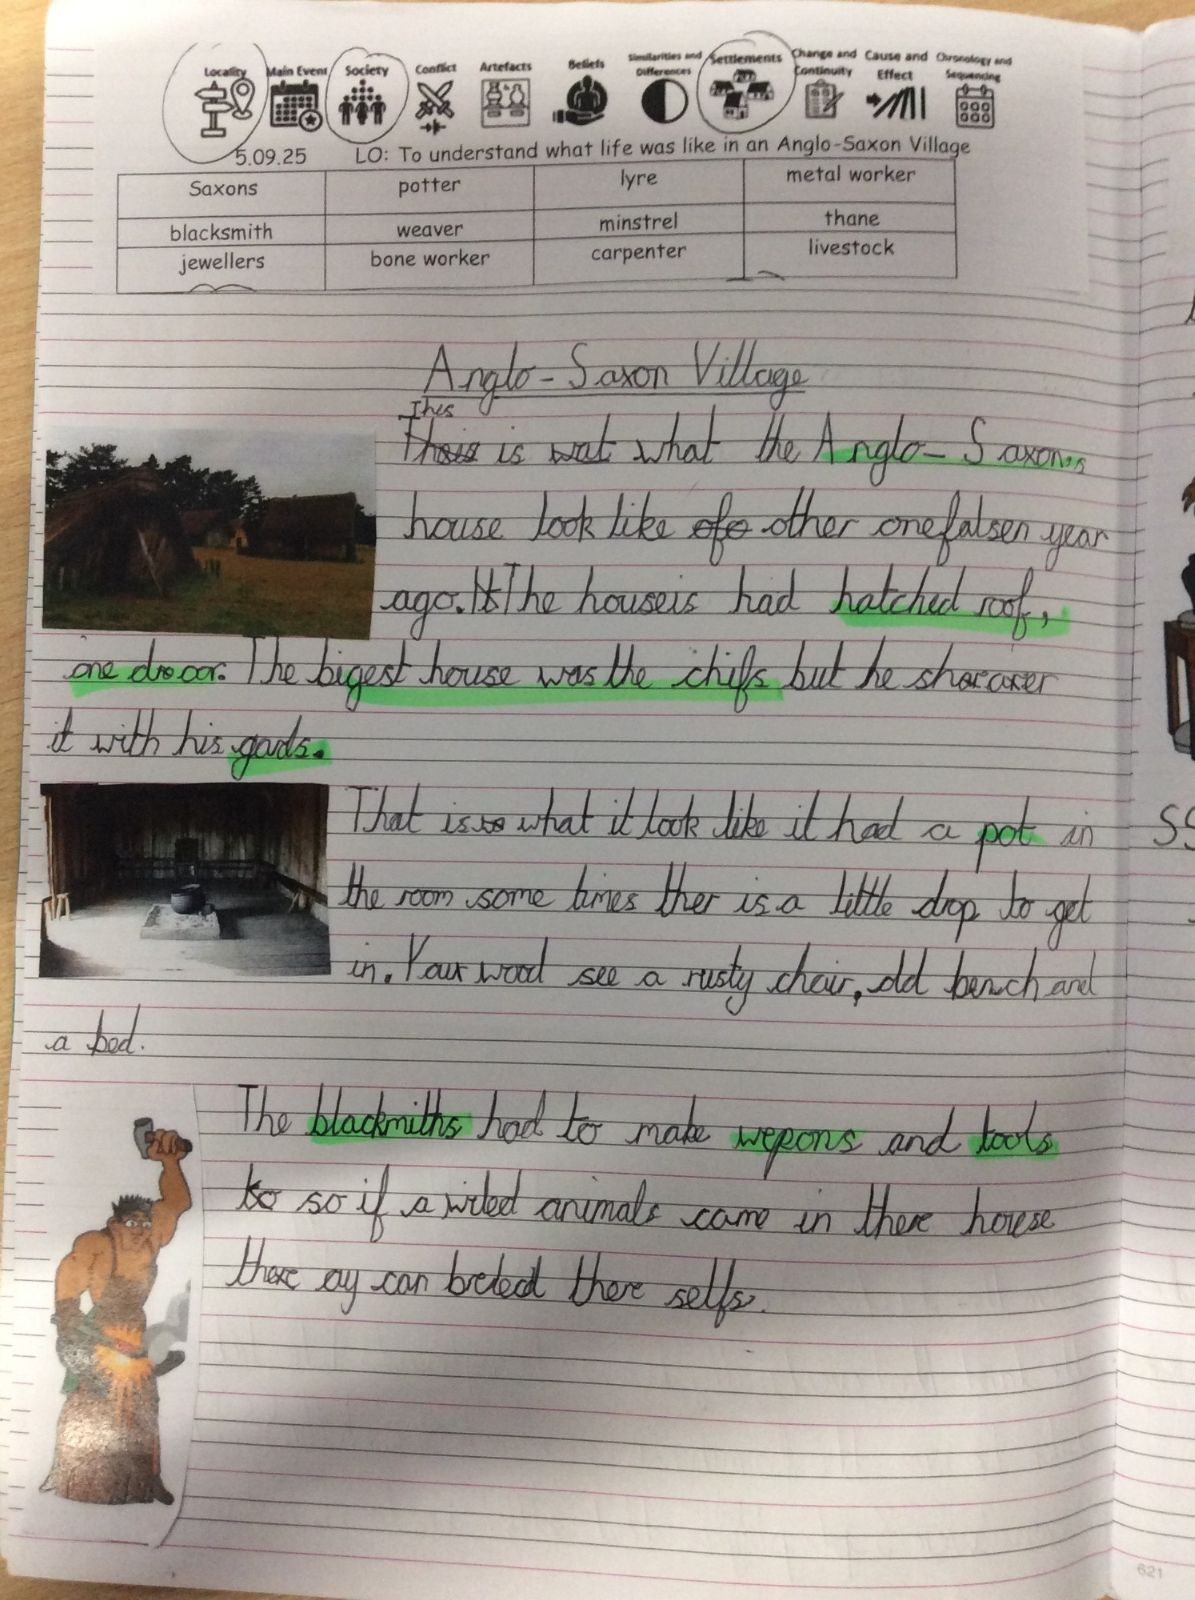 Locality Main Event Society Conflict Artefacts Beliefs Similarities and Differences Settlements Change and Continuity Cause and Effect Chronology and Sequencing
5.09.25 LO: To understand what life was like in an Anglo-Saxon Village
Saxons potter lyre metal worker
blacksmith weaver minstrel thane
jewellers bone worker carpenter livestock
Anglo-Saxon Village
This
is wat what the Anglo-Saxons
house look like ofo other onefalsen year
ago. It The houseis had hatched roof,
one drooor. The bigest house was the chifs but he
it with his gards.
That is what it look like it had a pot in
the room some times ther is a little drop to get
in. Your wood see a rusty chair, old bench and
a bed.
The blackmiths had to make wepons and tools
to so if a wiled animals came in there house
there ay can there selfs.
621